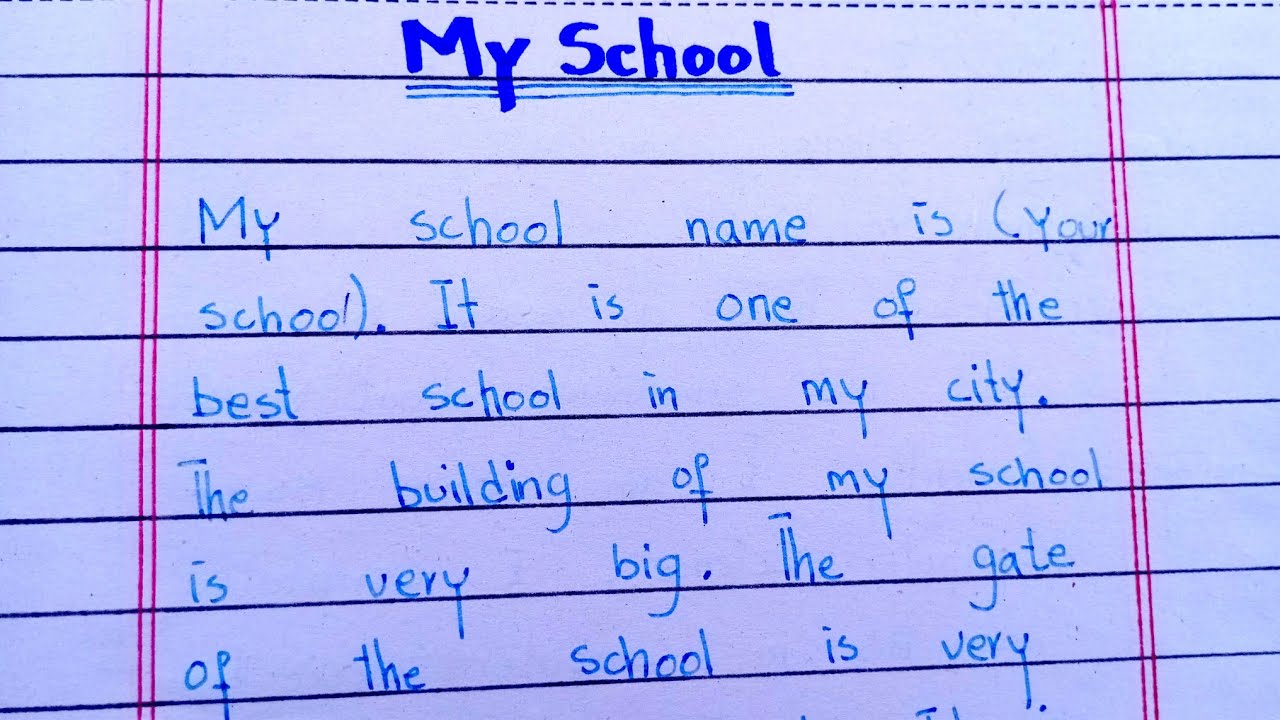 My School
My school name is (your
school). It is one of the
best school in my city.
The building of my school
is very big. The gate
of the school is very